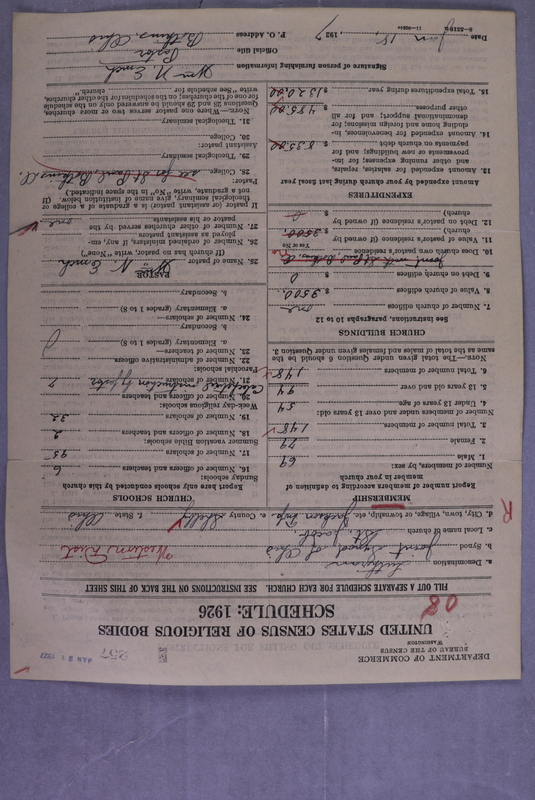 DEPARTMENT OF COMMERCE
BUREAU OF THE CENSUS
WASHINGTON
257
JAN 21 1927
UNITED STATES CENSUS OF RELIGIOUS BODIES
SCHEDULE: 1926
08
FILL OUT A SEPARATE SCHEDULE FOR EACH CHURCH. SEE INSTRUCTIONS ON THE BACK OF THIS SHEET
a. Denomination Lutheran
b. Synod Joint Synod of Ohio Western Dist
c. Local name of church St. Jacob
d. City, town, village, or township, etc. Jackson Twp. e. County Shelby f. State Ohio
R
MEMBERSHIP
Report number of members according to definition of
member in your church
Number of members, by sex:
1. Male 69
2. Female 79
3. Total number of members. 148
Number of members under and over 13 years old:
4. Under 13 years of age. 54
5. 13 years old and over 94
6. Total number of members 148
NOTE.—The total given under Question 6 should be the
same as the total of males and females given under Question 3.
CHURCH BUILDINGS
See instructions, paragraphs 10 to 12
7. Number of church edifices one
8. Value of church edifices $ 3500.
9. Debt on church edifices $ 0
10. Does church own pastor's residence
Yes or No
11. Value of pastor's residence (if owned by
church) $ 3500.
12. Debt on pastor's residence (if owned by
church) $ 0
EXPENDITURES
Amount expended by your church during last fiscal year
13. Amount expended for salaries, repairs,
and other running expenses; for im-
provements or new buildings; and for
payments on church debt $ 835.00
14. Amount expended for benevolences, in-
cluding home and foreign missions; for
denominational support; and for all
other purposes. $ 485.00
15. Total expenditures during year. $ 1320.00
CHURCH SCHOOLS
Report here only schools conducted by this church
Sunday schools:
16. Number of officers and teachers 6
17. Number of scholars 95
Summer vacation Bible schools:
18. Number of officers and teachers 2
19. Number of scholars 32
Week-day religious schools:
20. Number of officers and teachers
Catechetical instruction by pastor
21. Number of scholars 7
Parochial schools:
22. Number of administrative officers
23. Number of teachers—
a. Elementary (grades 1 to 8)
b. Secondary
24. Number of scholars—
a. Elementary (grades 1 to 8)
b. Secondary
PASTOR
25. Name of pastor Wm. N. Emch
(If church has no pastor, write "None")
26. Number of ordained ministers, if any, em-
ployed as assistant pastors
27. Number of other churches served by the
pastor or his assistants one
If pastor or assistant pastor is a graduate of a college or
theological seminary, give name of institution below. (If
not a graduate, write "No" in the space indicated.)
Pastor:
28. College. see for St. Paul, Botkins, O.
29. Theological seminary.
Assistant pastor:
30. College.
31. Theological seminary.
NOTE.—Where one pastor serves two or more churches,
Questions 25 and 29 should be answered only on the schedule
for one of the churches; on the schedules for the other churches,
write "See Schedule for church."
Signature of person furnishing information Wm. N. Emch
Official title Pastor
P. O. Address Botkins, Ohio
Date Jan 18, 1927